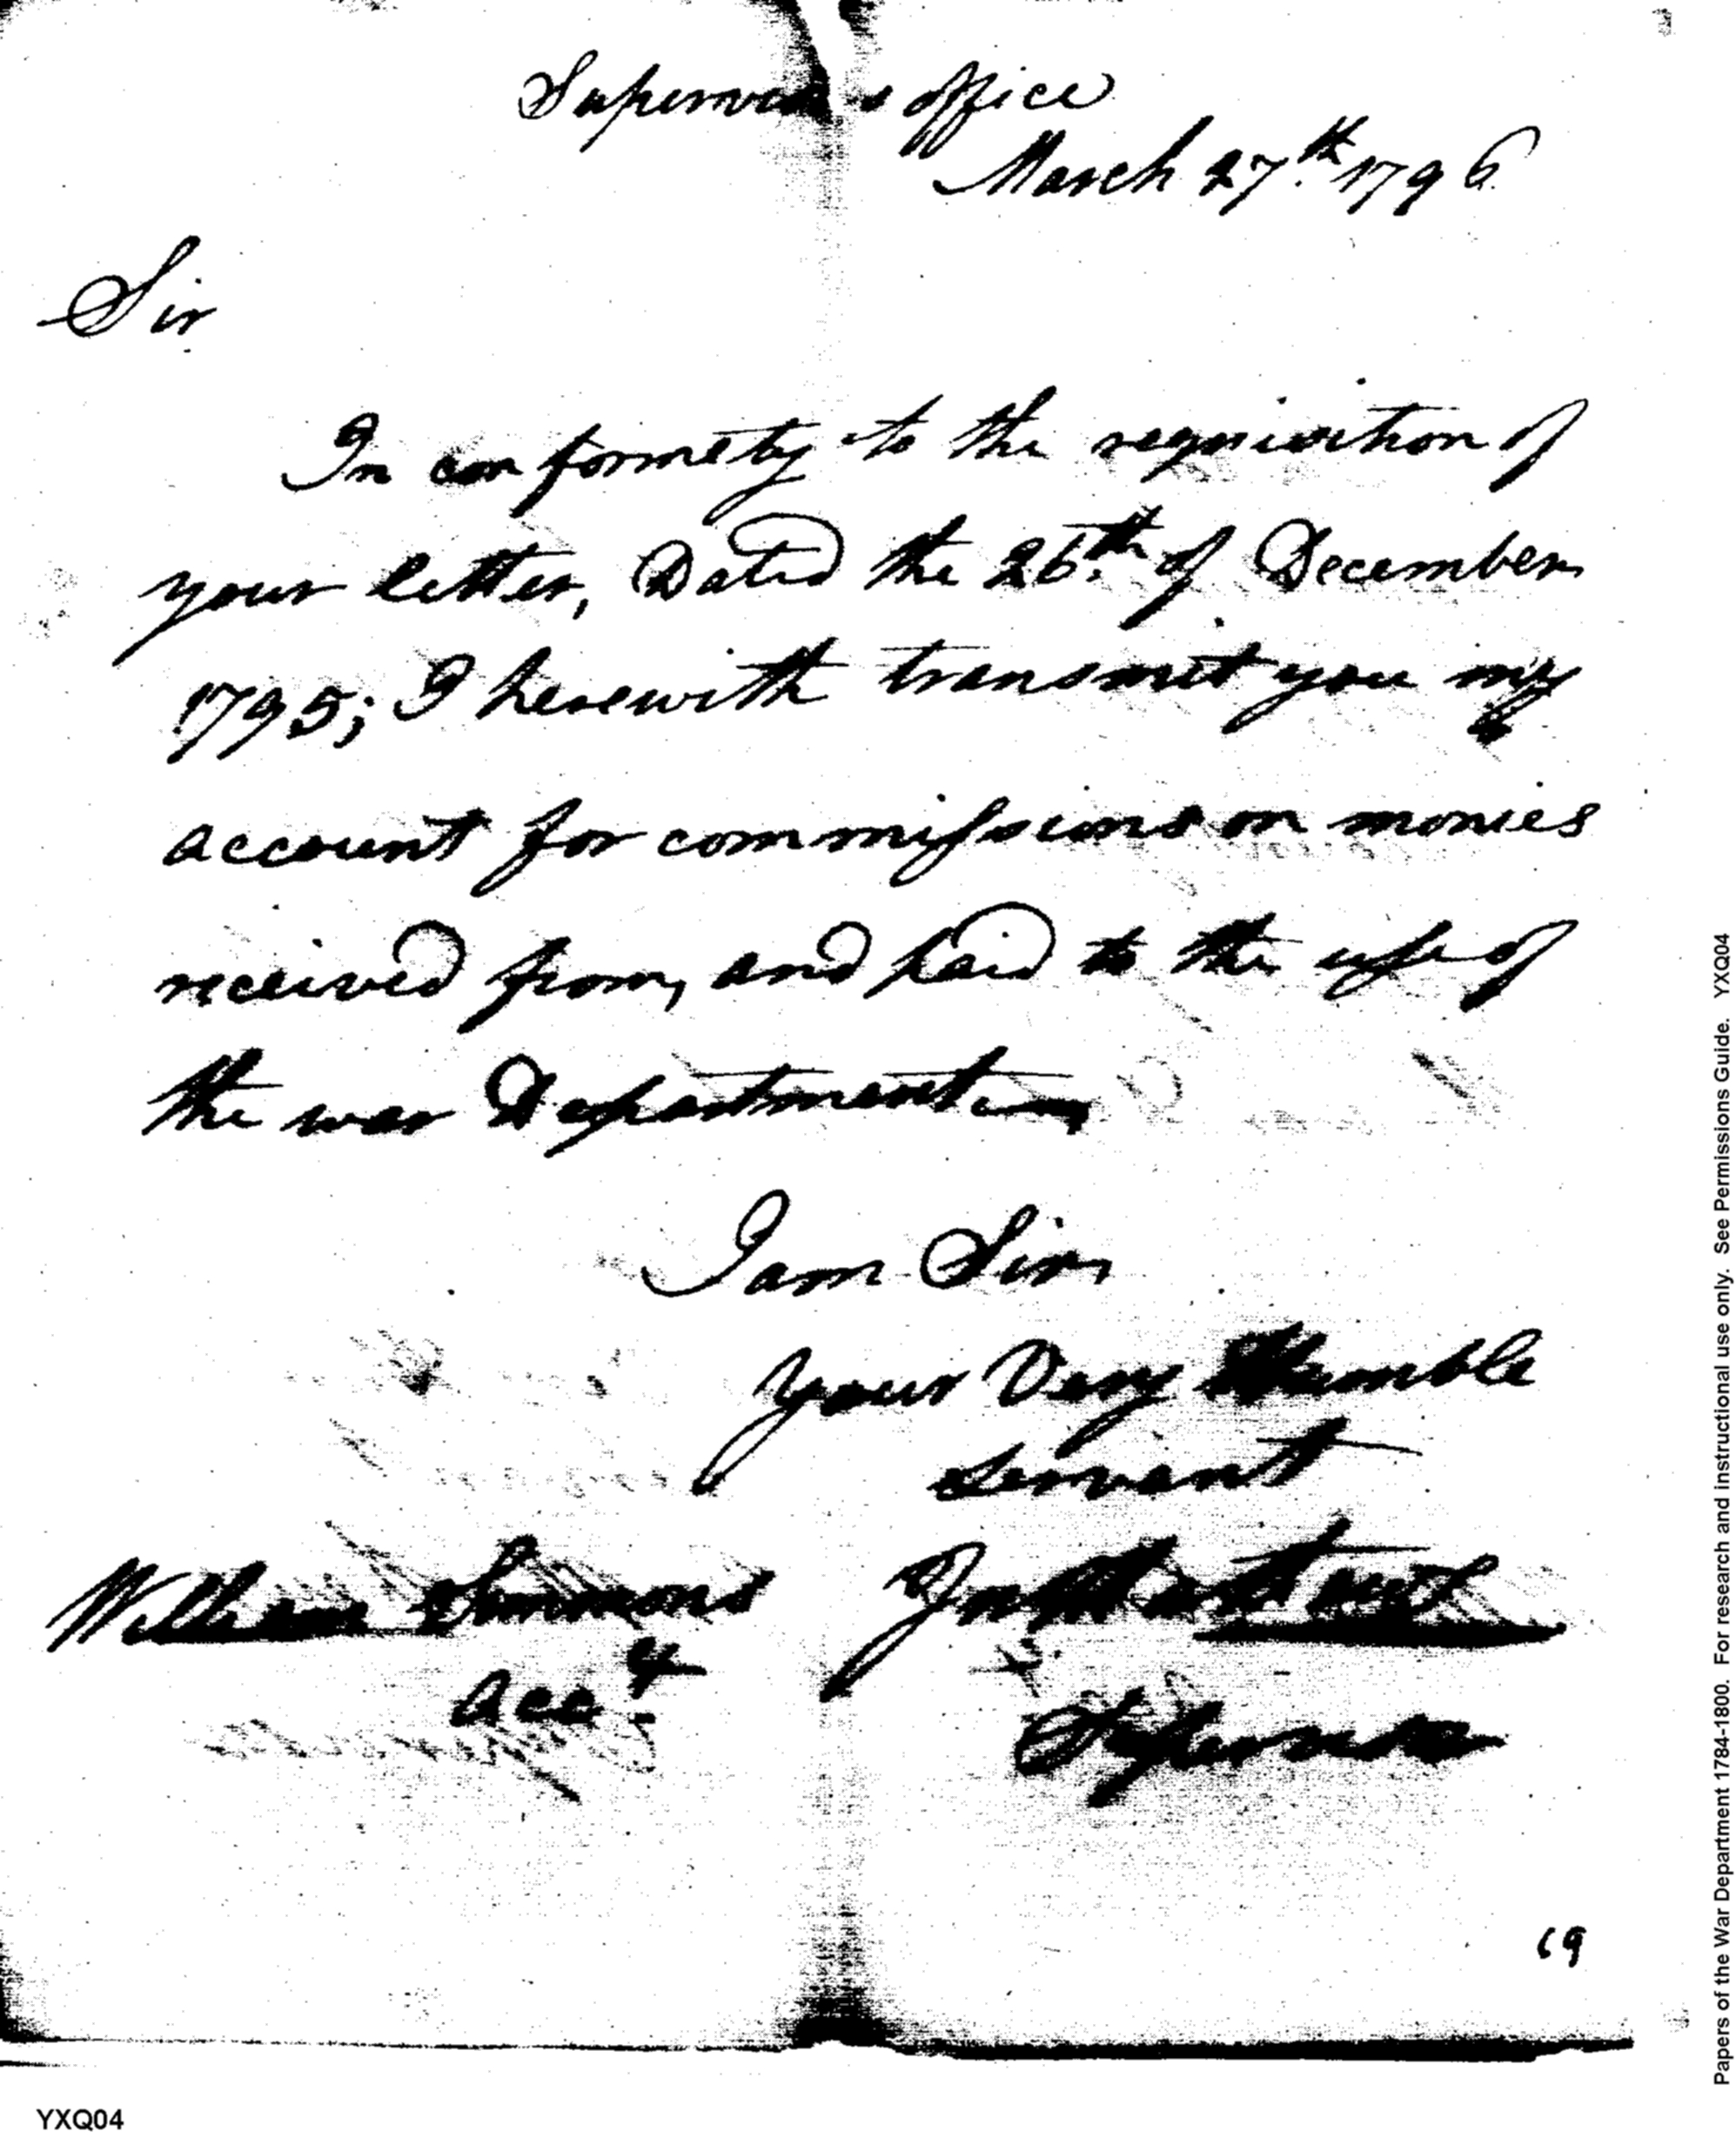 Supervisors office
March 27th. 1796
Sir
In conformety to the requisition of
your letter, Dated the 26th. of December
1795; I herewith transmit you my
account for commissions on monies
received from, and paid to the use of
the war Department
I am Sir,
Your Very Humble
Servent
William Simmons
Acct
Supervisor
69
YXQ04
Papers of the War Department 1784-1800. For research and instructional use only. See Permissions Guide. YXQ04